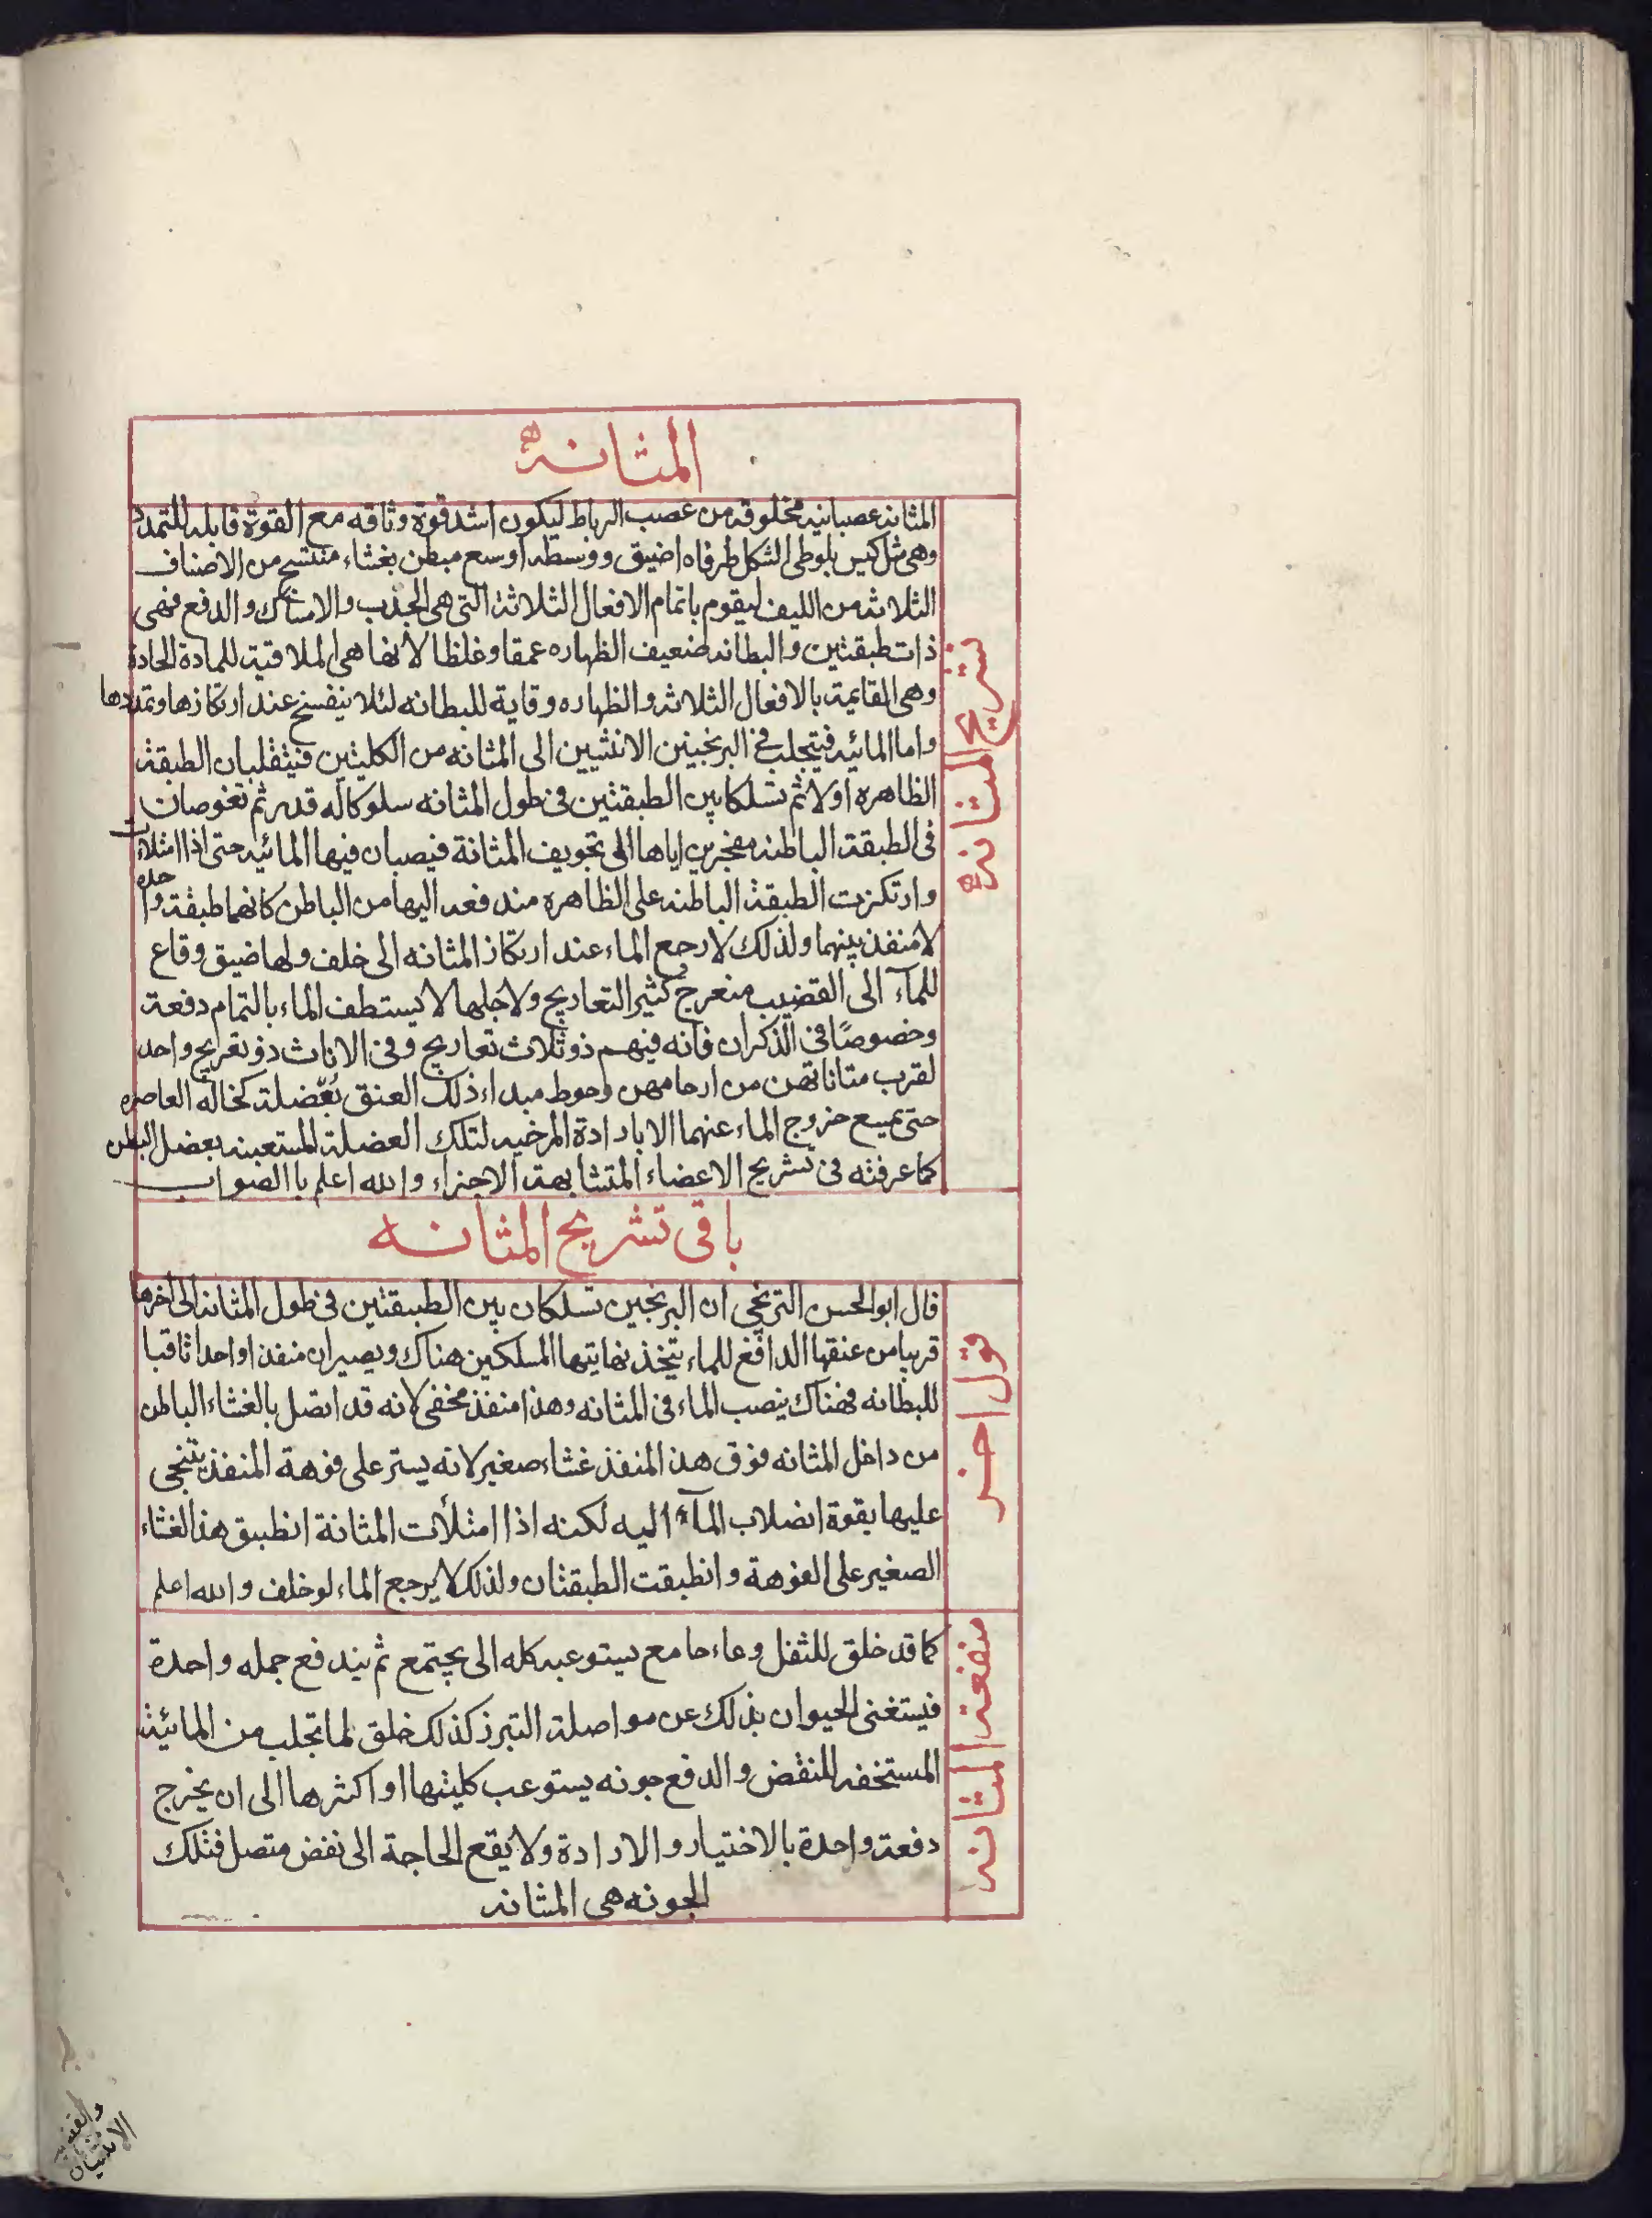 المثانه
تشريح المثانه
المثانه عصبانيه مخلوقه من عصب الرباط ليكون اشد قوة وثاقه مع القوة قابله للتمدد
وهى مثل كيس بلوطى الشكل طرفاه اضيق ووسطه اوسع مبطن بغشاء منتسج من الاصناف
الثلاثه من الليف ليقوم باتمام الافعال الثلاثة التى هى الجذب والامساك والدفع فهى
ذات طبقتين والبطانه ضعيف الظهاره عمقا وغلظا لانها هى الملاقية للمادة الحادة
وهى القايمة بالافعال الثلاثه والظهاره وقاية للبطانه لئلا ينفسخ عند ارتكازها وتمددها
واما المائيه فيتجلب فى البربخين الانثيين الى المثانه من الكليتين فيثقلبان الطبقة
الظاهره اولا ثم تسلكا بين الطبقتين فى طول المثانه سلوكا له قدر ثم تغوصان
فى الطبقة الباطنه مفجرين اياها الى تجويف المثانة فيصبان فيها المائيه حتى اذا امتلات
وارتكزت الطبقة الباطنه على الظاهره مندفعه اليها من الباطن كانهما طبقة واحده
لا منفذ بينهما ولذلك لا رجع الماء عند ارتكاز المثانه الى خلف ولها ضيق وقاع
للمآء الى القضيب منعرج كثير التعاريج ولاجلها لا يستطف الماء بالتمام دفعة
وخصوصًا فى الذكران فانه فيهم ذو ثلاث تعاريج وفى الاناث ذو تعريج واحد
لقرب مثاناتهن من ارحامهن وحوط مبداء ذلك العنق بعّضلة كخاله العاصره
حتى يميع خروج الماء عنهما الا بارادة المرخيه لتلك العضلة المستعينه بعضل البطن
كما عرفته فى تشريح الاعضاء المتشابهة الاجزاء والله اعلم با الصواب
باقى تشريح المثانه
قول اخر
قال ابو الحسن الترنجى ان البربخين تسلكان بين الطبيقتين فى طول المثانه الى اخرها
قريبا من عنقها الدافع للماء يتخذ نهايتها المسلكين هناك ويصيران منفذا واحدا ثاقبا
للبطانه فهناك ينصب الماء فى المثانه وهذا منفذ مخفى لانه قد اتصل بالغشاء الباطن
من داخل المثانه فوق هذ المنفذ غشاء صغير لانه يستر على فوهة المنفذ يتنجى
عليها بقوة انصلاب المآء اليه لكنه اذا امتلأت المثانة انطبيق هذ الغشاء
الصغير على الفوهة وانطبقت الطبقتان ولذلك لا يرجع الماء لوخلف والله اعلم
منفعة المثانه
كما قد خلق للثفل وعاء جامع يستوعبه كله الى يجتمع ثم يندفع جمله واحدة
فيستغنى الحيوان بذلك عن مواصلة التبرز كذلك خلق لما تجلب من المائية
المستخفه للنقض والدفع جونه يستوعب كليتها او اكثرها الى ان يخرج
دفعة واحدة بالاختيار والارادة ولا يقع الحاجة الى نفض متصل فتلك
الجونه هى المثانه
والقضيب
الانثيان